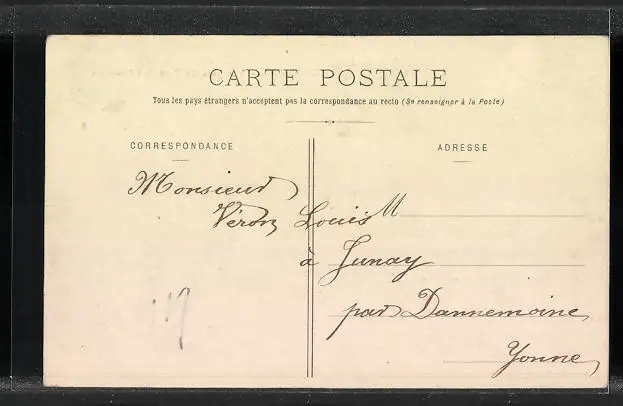 CARTE POSTALE
Tous les pays étrangers n'acceptent pas la correspondance au recto (Se renseigner à la Poste)
CORRESPONDANCE
ADRESSE
Monsieur
Véron Louis M
à Junay
par Dannemoine
Yonne